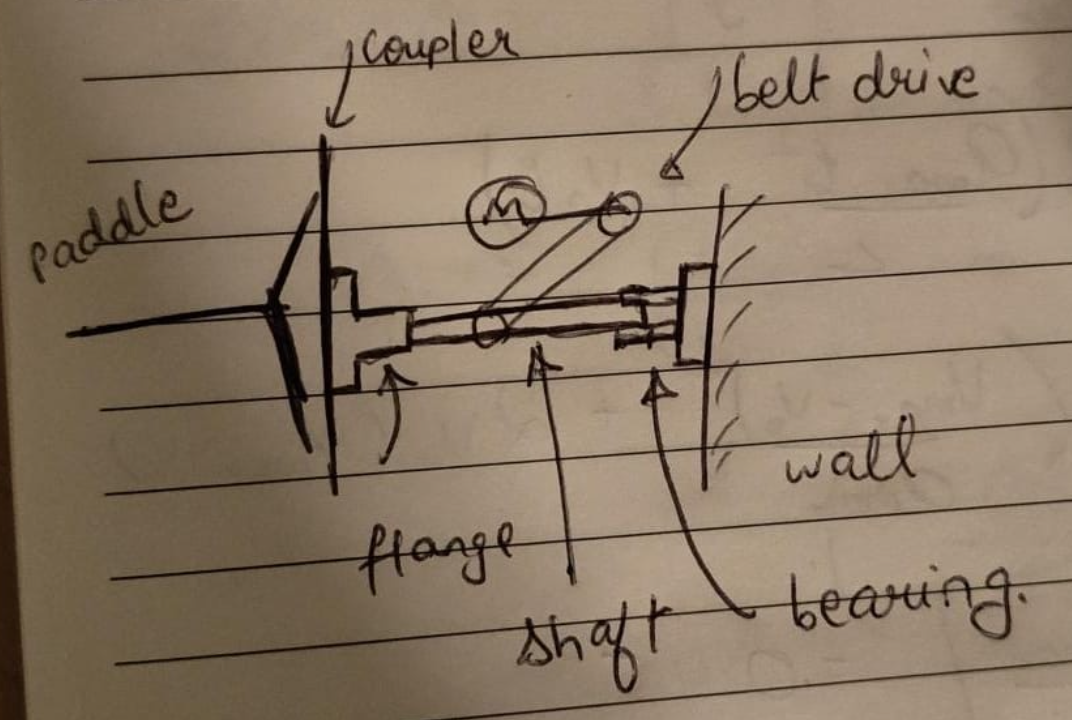 coupler
belt drive
paddle
M
wall
flange
shaft
bearing.